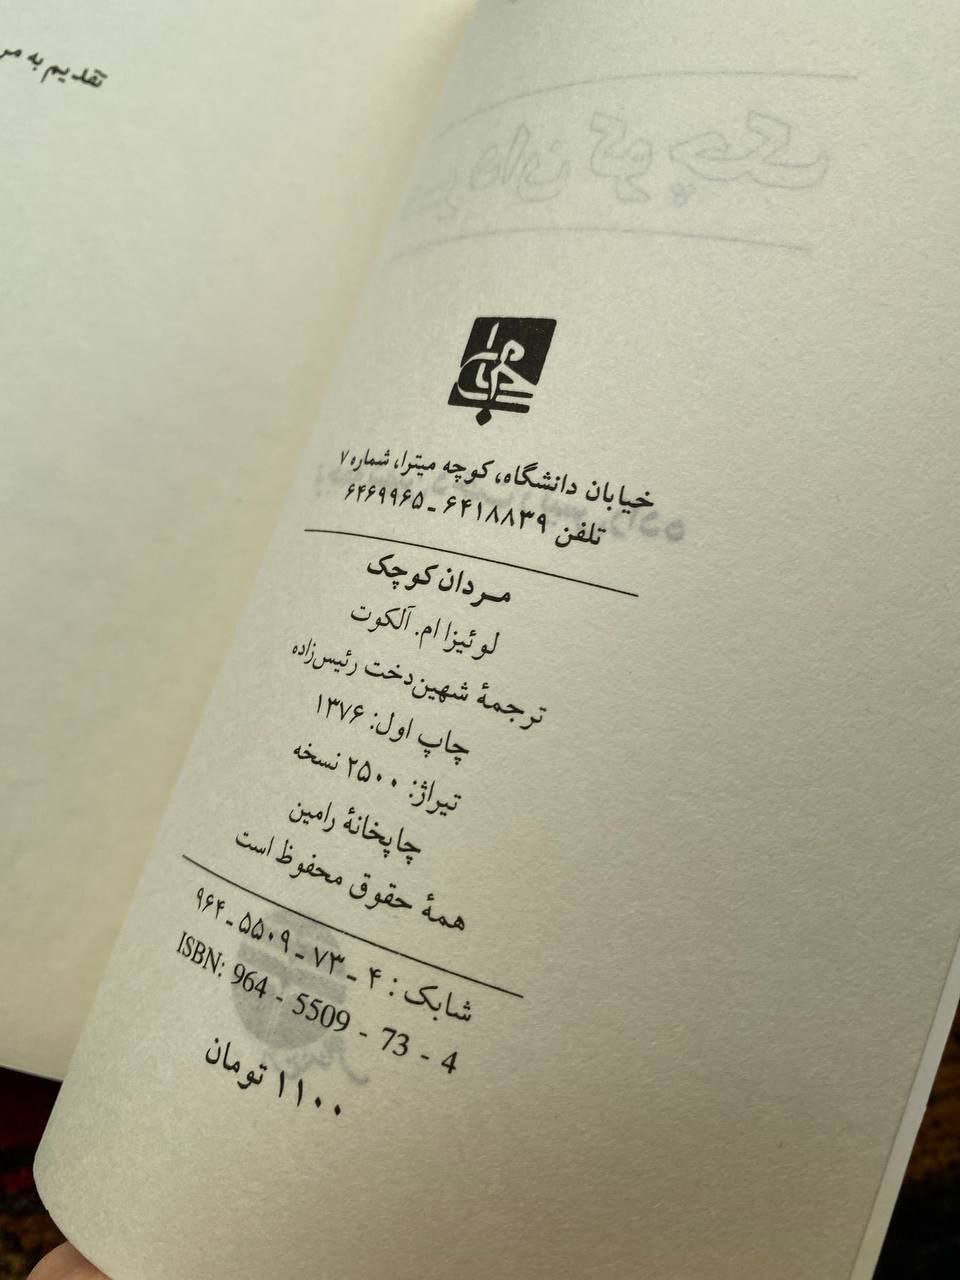 تقدیم به
خیابان دانشگاه، کوچه میترا، شماره ۷
تلفن ۶۴۱۸۸۳۹ ـ ۶۴۶۹۹۶۵
مردان کوچک
لوئیزا ام. آلکوت
ترجمهٔ شهین‌دخت رئیس‌زاده
چاپ اول: ۱۳۷۶
تیراژ: ۲۵۰۰ نسخه
چاپخانهٔ رامین
همهٔ حقوق محفوظ است
شابک : ۴ ـ ۷۳ ـ ۵۵۰۹ ـ ۹۶۴
ISBN: 964 - 5509 - 73 - 4
۱۱۰۰ تومان